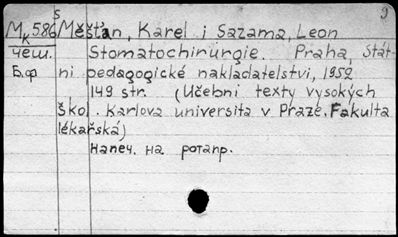 S 9
Мк586 Měšťan, Karel i Sazama, Leon
чеш. Stomatochirurgie. Praha, Stát-
Б.ф ní pedagogické nakladatelství, 1952
149 str. (Učební texty vysokých
škol. Karlova universita v Praze. Fakulta
lékařská)
Напеч. на ротапр.